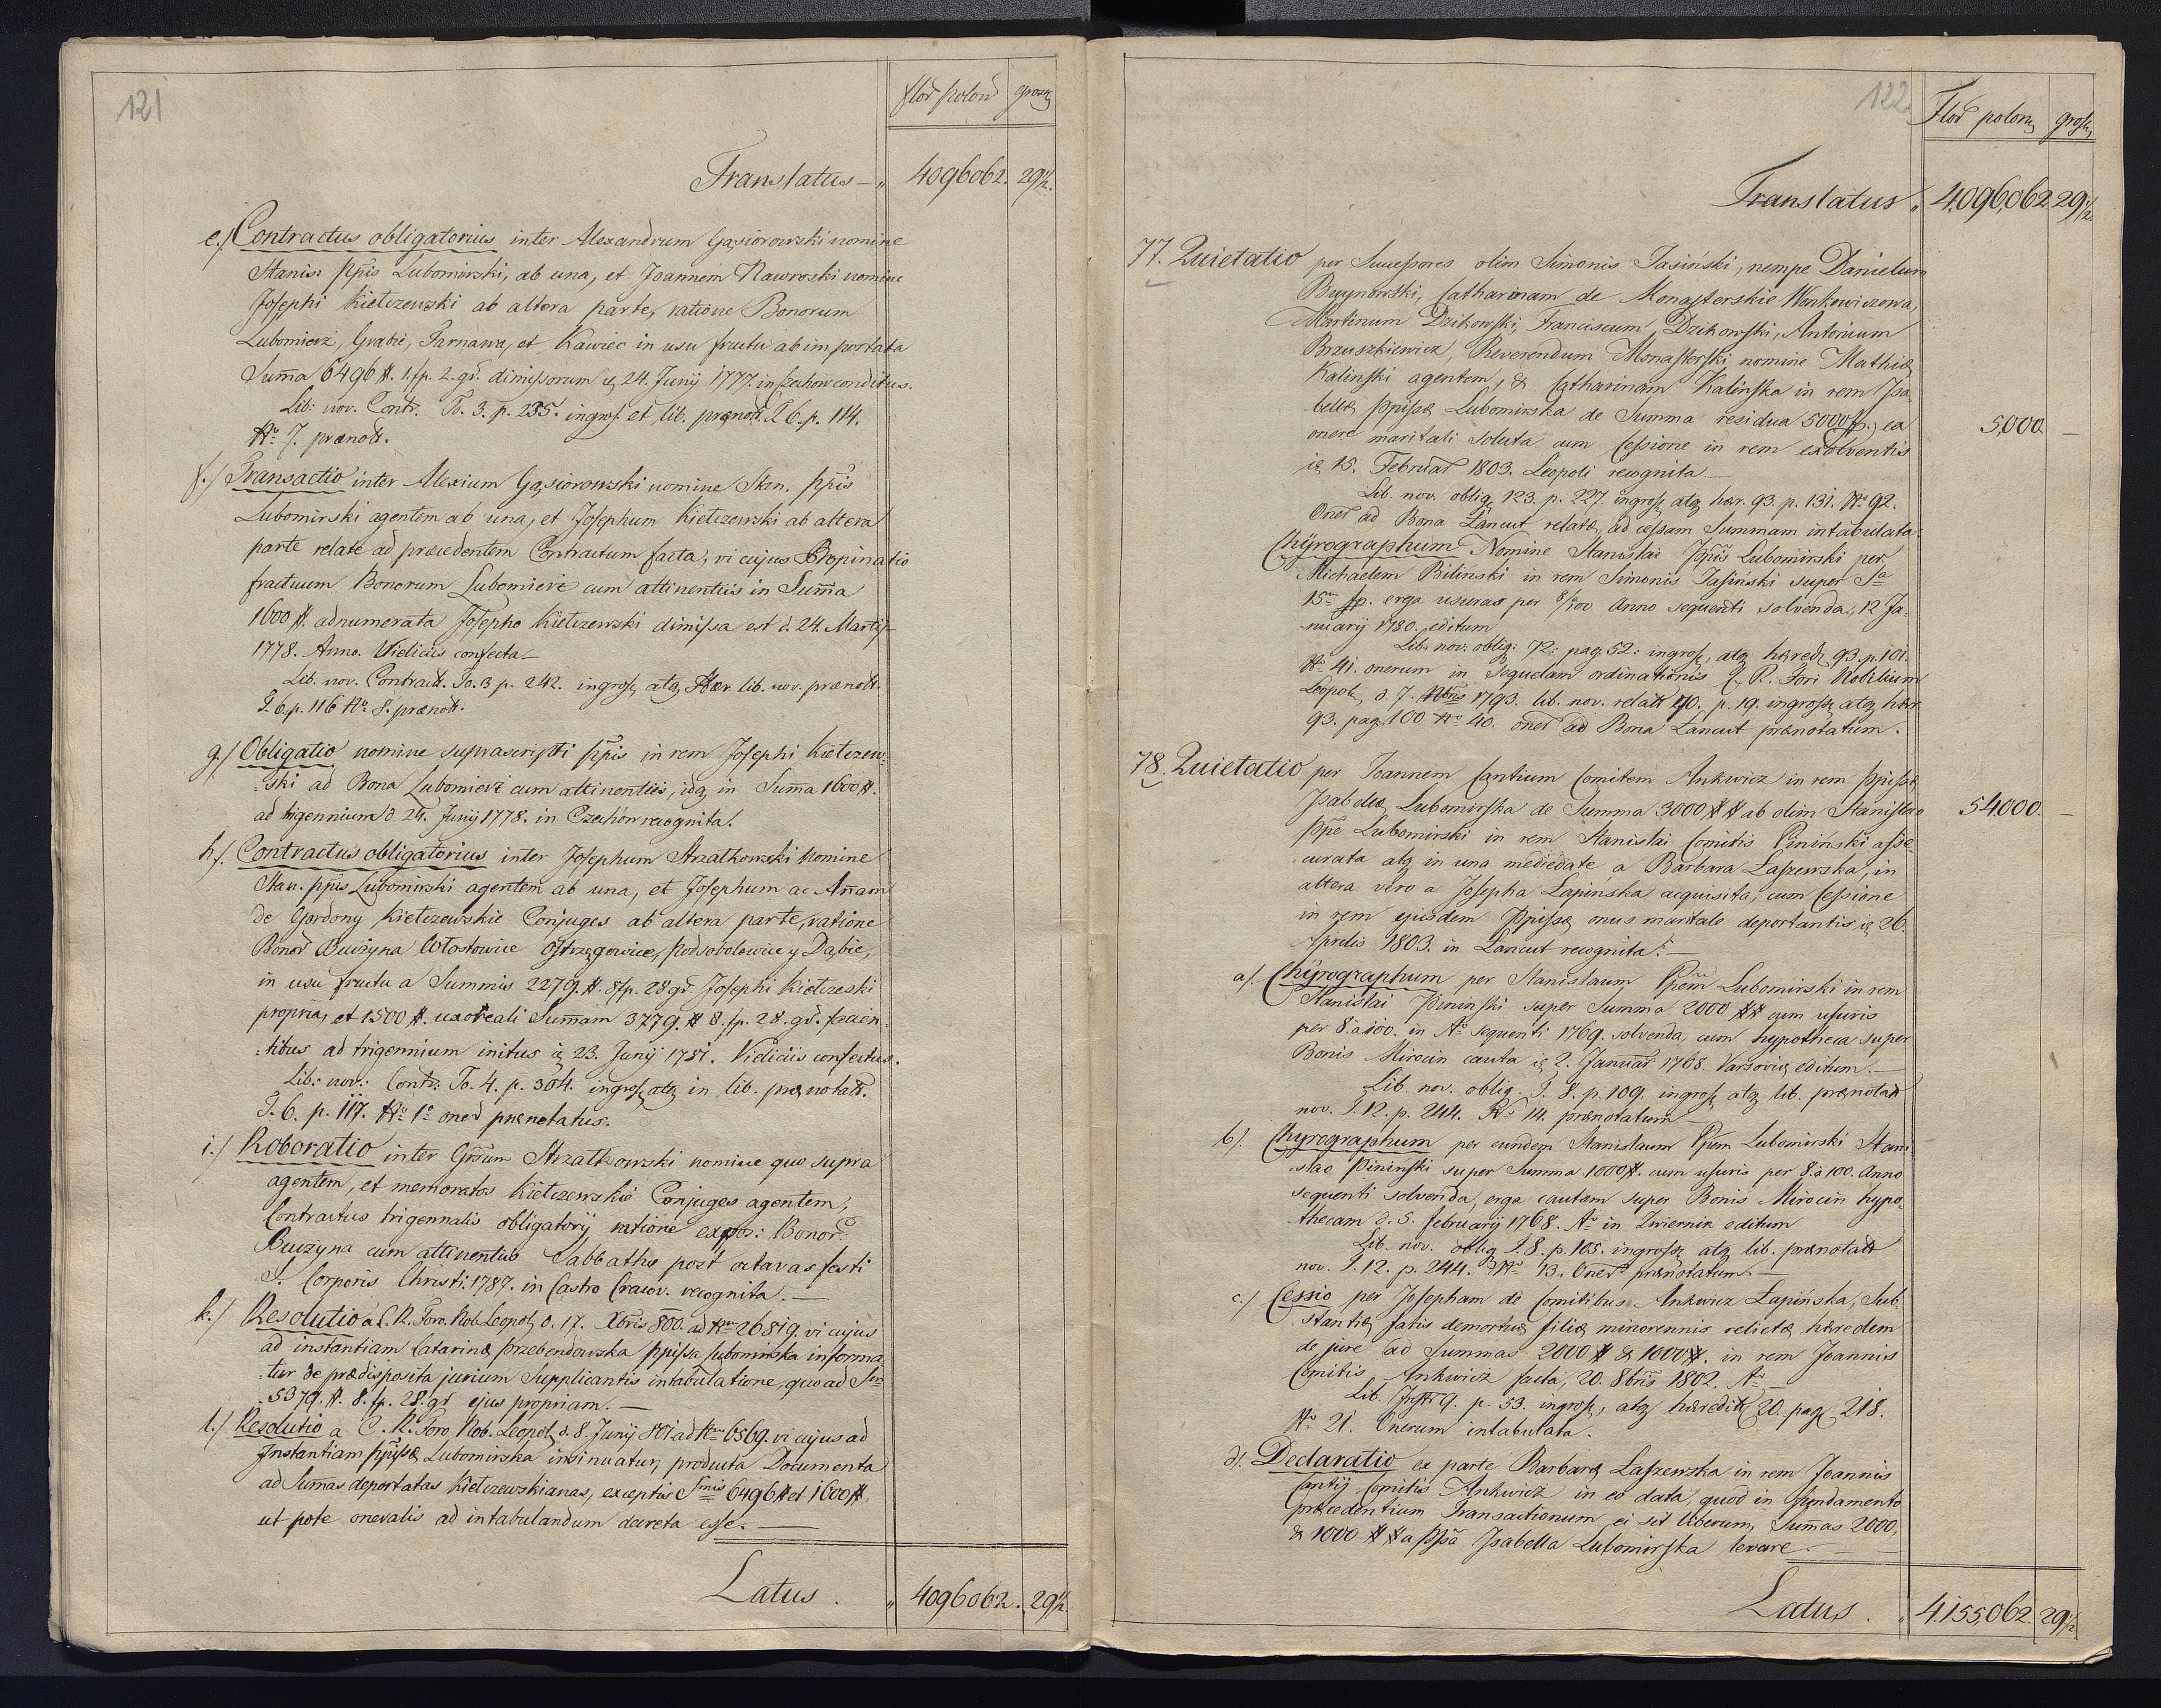 121
flor polon grosz
Translatus — " 4096062. 29½.
e./ Contractus obligatorius inter Alexandrum Gąsiorowski nomine
Stanis: Ppis Lubomirski, ab una, et Joannem Nawroski nomine
Josephi Kiełczewski ab altera parte, ratione Bonorum
Lubomierz, Grabie, Tarnawa, et Kawiec in usu fructu ab importata
Suma 6496 #. 1. fp. 2. gr. dimissorum 24. Junij 1777. in Czechów conditus.
Lib: nov. Contr. To. 3. p. 235. ingros. et lib. prænot. 26. p. 114.
Nr. 7. prænot.
f./ Transactio inter Alexium Gąsiorowski nomine Stan. Ppis
Lubomirski agentem ab una, et Josephum Kiełczewski ab altera
parte relate ad præcedentem Contractum facta, vi cujus Propinatio
fructuum Bonorum Lubomierz cum attinentiis in Suma
1600 #. adnumerata Josepho Kiełczewski dimissa est d. 24. Martij
1778. Anno. Vieliciis confecta —
Lib. nov. Contract. To. 3 p. 242. ingros, atq Hær. lib. nov. prænot.
T. 6. p. 116 Nr. 8. prænot.
g./ Obligatio nomine suprascripti Ppis in rem Josephi Kiełczew:
:ski ad Bona Lubomierz cum attinentiis, idq in Suma 1600 #.
ad trigennium d. 24. Junij 1778. in Czechów recognita.
h./ Contractus obligatorius inter Josephum Strzałkowski Nomine
Stan. Ppis Lubomirski agentem ab una, et Josephum ac Annam
de Gordony Kiełczewskie Conjuges ab altera parte, ratione
Bonor Buczyna Włostowice Ostrzęgowice, Podsobolowice y Dąbie,
in usu fructu a Summis 2279. #. 8 fp. 28 gr. Josephi Kiełczeski
propria, et 1500 #. uxoreali Summam 3779. # 8. fp. 28. gr. facien
:tibus ad trigennium initus 23. Junij 1781. Vieliciis confectus.
Lib: nov: Contr: To. 4. p. 304. ingros atq in lib. prænotat.
T. 6. p. 117. Nr. 1º oner prænotatus.
i./ Roboratio inter Grsum Strzałkowski nomine quo supra
agentem, et memoratos Kiełczewskie Conjuges agentem,
Contractus trigennalis obligatorij ratione expos: Bonor.
Buczyna cum attinentiis Sabbatho post octavas festi
S. Corporis Christi. 1787. in Castro Cracov. recognita. —
k./ Resolutio a C. R. Foro Nob. Leopol, d. 17. Xbris 800. ad Nrm 26819. vi cujus
ad instantiam Catarinæ Przebendowska Ppissa Lubomirska informa
:tur de prædisposita jurium Supplicantis intabulatione, quoad Sm
5379. #. 8. fp. 28. gr ejus propriam. —
l./ Resolutio a C. R. Foro Nob. Leopol, d. 8. Junij 801 ad Nrm 6569. vi cujus ad
Instantiam Ppissæ Lubomirska insinuatur, producta Documenta
ad Sumas deportatas Kiełczewskianas, exceptis Smis 6496 # et 1600 #.
ut pote oneralis ad intabulandum decreta esse. —
Latus. " 4096062. 29½.
122
Flor polon grosz
Translatus " 4,096,062 29½
77. Quietatio per Successores olim Simonis Jasiński, nempe Danielum
Buynowski, Catharinam de Monasterskie Wankowiczowa,
Martinum Dzikowski, Franciscum Dzikowski, Antonium
Brzuszkiewicz, Reverendum Monasterski nomine Mathiæ
Kalinski agentem, & Catharinam Kalinska in rem Isa
bellæ Ppissæ Lubomirska de Summa residua 5000 fp., ea
onere maritali soluta cum Cessione in rem exolventis
15. Februar 1803. Leopoli recognita. — 5,000 —
Lib. nov. oblig. 123. p. 227. ingros, atq hær. 93. p. 131. Nr. 92.
Oner ad Bona Łancut relate ad cessam Summam intabulata.
Chyrographum Nomine Stanislai Ppis Lubomirski per
Michaelem Biliński in rem Simonis Jasiński super Sa
15m fp. erga usuras per 8/100 Anno sequenti solvenda, 12 Ja
nuarij 1780. editum
Lib. nov: oblig: 72: pag. 52: ingros, atq hæred. 93. p. 101.
Nr. 41. onerum in sequelam ordinationis C. R. Fori Nobilium
Leopol, d 7. 1793. lib. nov. relat 40. p. 19. ingros, atq hær
93. pag. 100 Nr. 40. oner ad Bona Łancut prænotatum.
78. Quietatio per Joannem Cantium Comitem Ankwicz in rem Ppissæ
Isabellæ Lubomirska de Summa 3000 ## ab olim Stanislao 54000. —
Ppe Lubomirski in rem Stanislai Comitis Piniński asse
:curata atq in una medietate a Barbara Łaszewska, in
altera vero a Josepha Łapińska acquisita, cum Cessione
in rem ejusdem Ppissæ onus maritale deportantis 26.
Aprilis 1803. in Łancut recognita. —
a/. Chyrographum per Stanislaum Ppem Lubomirski in rem
Stanislai Pininski super Summa 2000 ## cum usuris
per 8. a 100. in Ao sequenti 1769. solvenda, cum hypotheca super
Bonis Mirocin cauta 2. Januar 1768. Varsoviæ editum. —
Lib. nov. oblig. T. 8. p. 109. ingros, atq lib. prænotat
nov. T. 12. p. 244. Nr. 14. prænotatum —
b/. Chyrographum per eundem Stanislaum Ppem Lubomirski Stani
slao Pininski super Summa 1000 #. cum usuris per 8. a 100. Anno
sequenti solvenda, erga cautam super Bonis Mirocin hypo
thecam d. 5. februarij 1768. Ao in Zwiernik editum
Lib. nov. oblig T. 8. p. 105. ingros, atq lib. prænotat
nov. T. 12. p. 244. Nr. 13. Oner prænotatum. —
c./ Cessio per Josepham de Comitibus Ankwicz Łapińska, Sub
stantiæ fatis demortuæ filiæ minorennis relictæ hæredem
de jure ad Summas 2000 # & 1000 #. in rem Joannis
Comitis Ankwicz facta, 20. 8bris 1802. Ao —
Lib. Instr. 9. p. 53. ingros, atq heredit. 20. pag. 218.
Nr. 21. Onerum intabulata.
d/. Declaratio ex parte Barbaræ Łaszewska in rem Joannis
Cantij Comitis Ankwicz in eo data, quod in fundamento
præcedentium Transactionum, ei sit liberum, Sumas 2000,
& 1000 ## a Ppsa Isabella Lubomirska levare —
Latus. " 4,155,062 29½